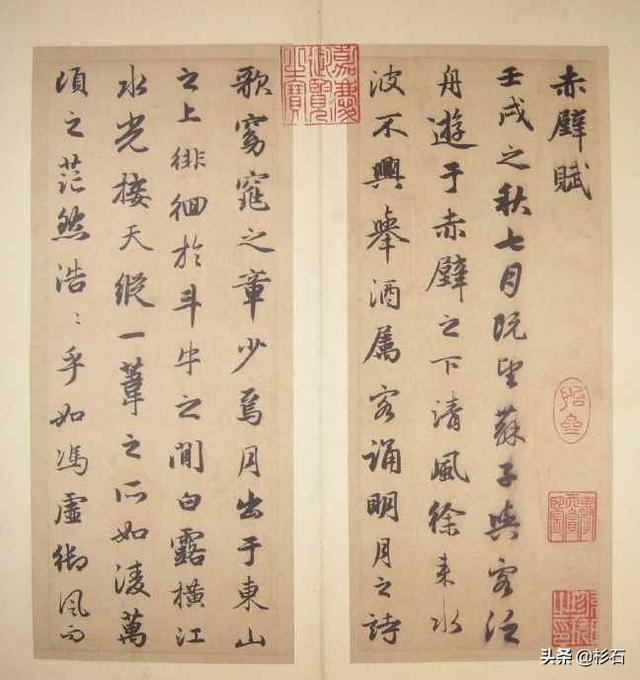 赤壁賦
壬戌之秋七月既望蘇子與客泛
舟遊于赤壁之下清風徐来水
波不興舉酒属客誦明月之詩
歌窈窕之章少焉月出于東山
之上徘徊於斗牛之間白露横江
水光接天縱一葦之所如凌萬
頃之茫然浩〻乎如馮虛御風而
嘉慶御覽之寶
头条 @杉石